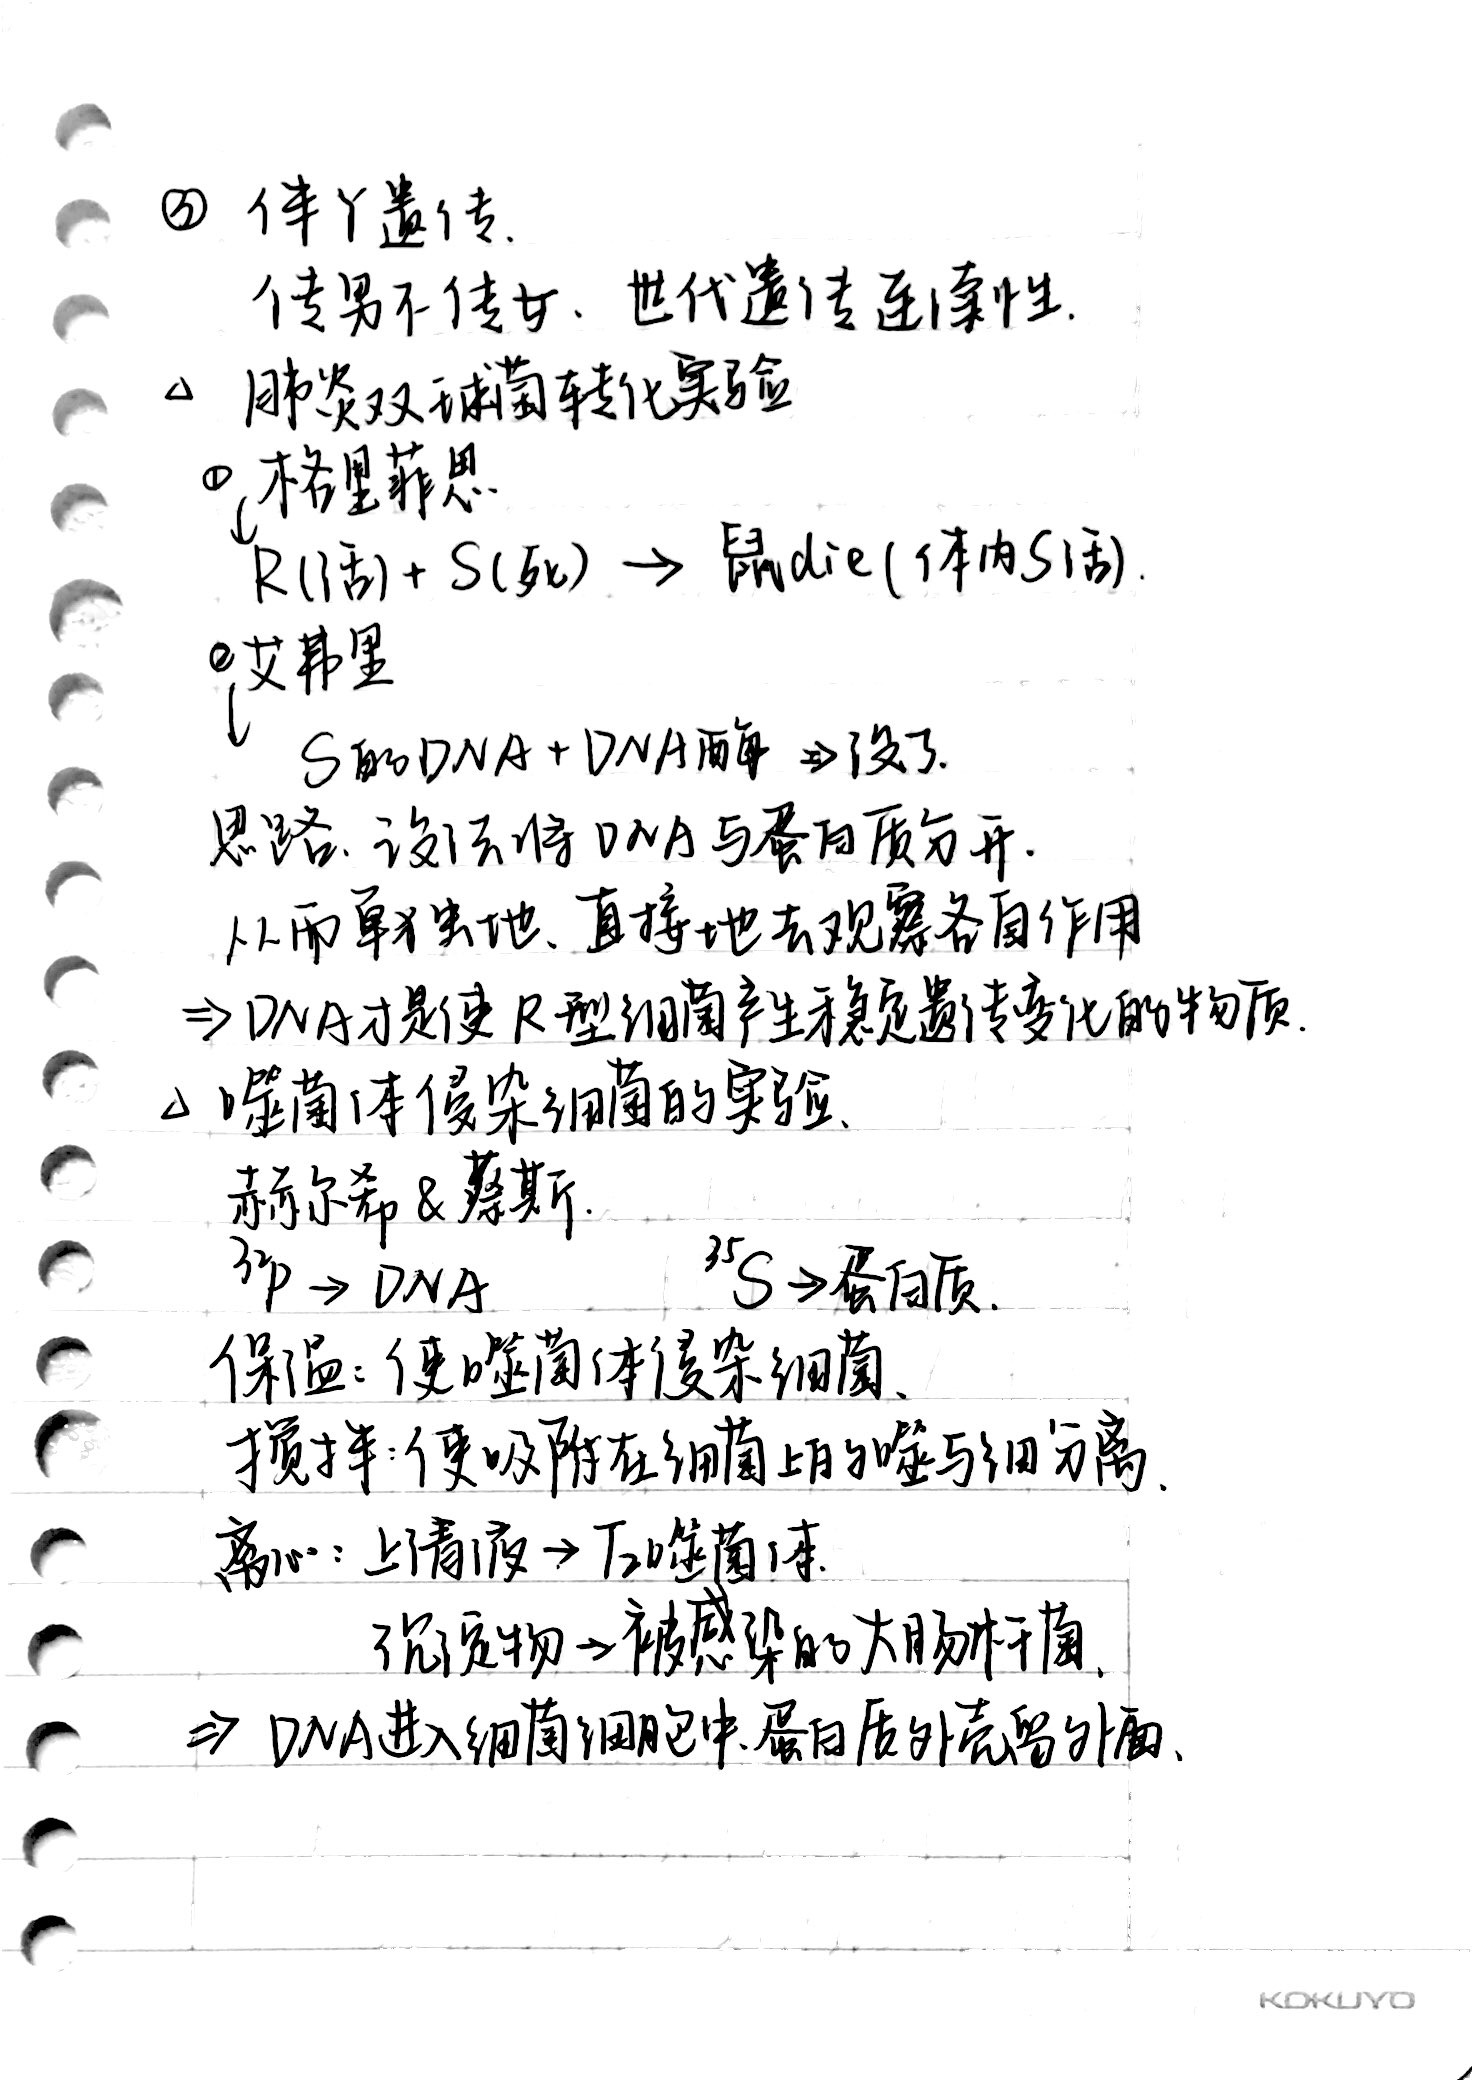 ③ 伴Y遗传.
传男不传女、世代遗传连续性.
△ 肺炎双球菌转化实验
① 格里菲思.
↓ R(活)+S(死) → 鼠die(体内S活).
② 艾弗里
↓ S的DNA+DNA酶 ⇒ 没了.
思路、设法将DNA与蛋白质分开.
从而单独地、直接地去观察各自作用
⇒ DNA才是使R型细菌产生稳定遗传变化的物质.
△ 噬菌体侵染细菌的实验、
赫尔希&蔡斯.
³²P → DNA ³⁵S → 蛋白质.
保温: 使噬菌体侵染细菌、
搅拌: 使吸附在细菌上的噬与细分离、
离心: 上清液 → T₂噬菌体.
沉淀物 → 被感染的大肠杆菌、
⇒ DNA进入细菌细胞中、蛋白质外壳留外面、
KOKUYO